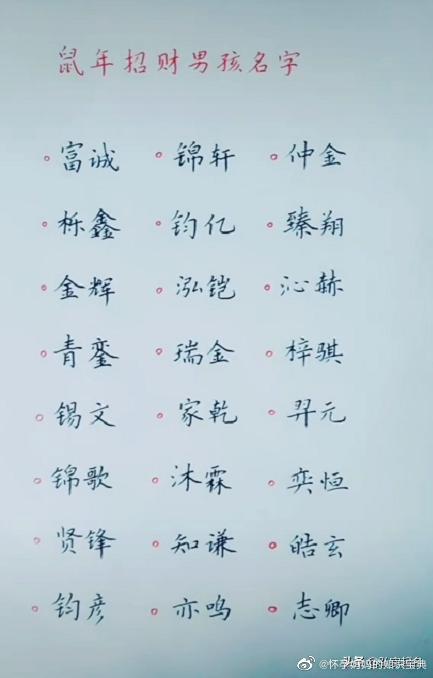 鼠年招财男孩名字
富诚 锦轩 仲金
栎鑫 钧亿 臻翔
金辉 泓铠 沁赫
青銮 瑞金 梓骐
锡文 家乾 羿元
锦歌 沐霖 奕恒
贤锋 知谦 皓玄
钧彦 亦鸣 志卿
@怀孕妈妈的知识宝典